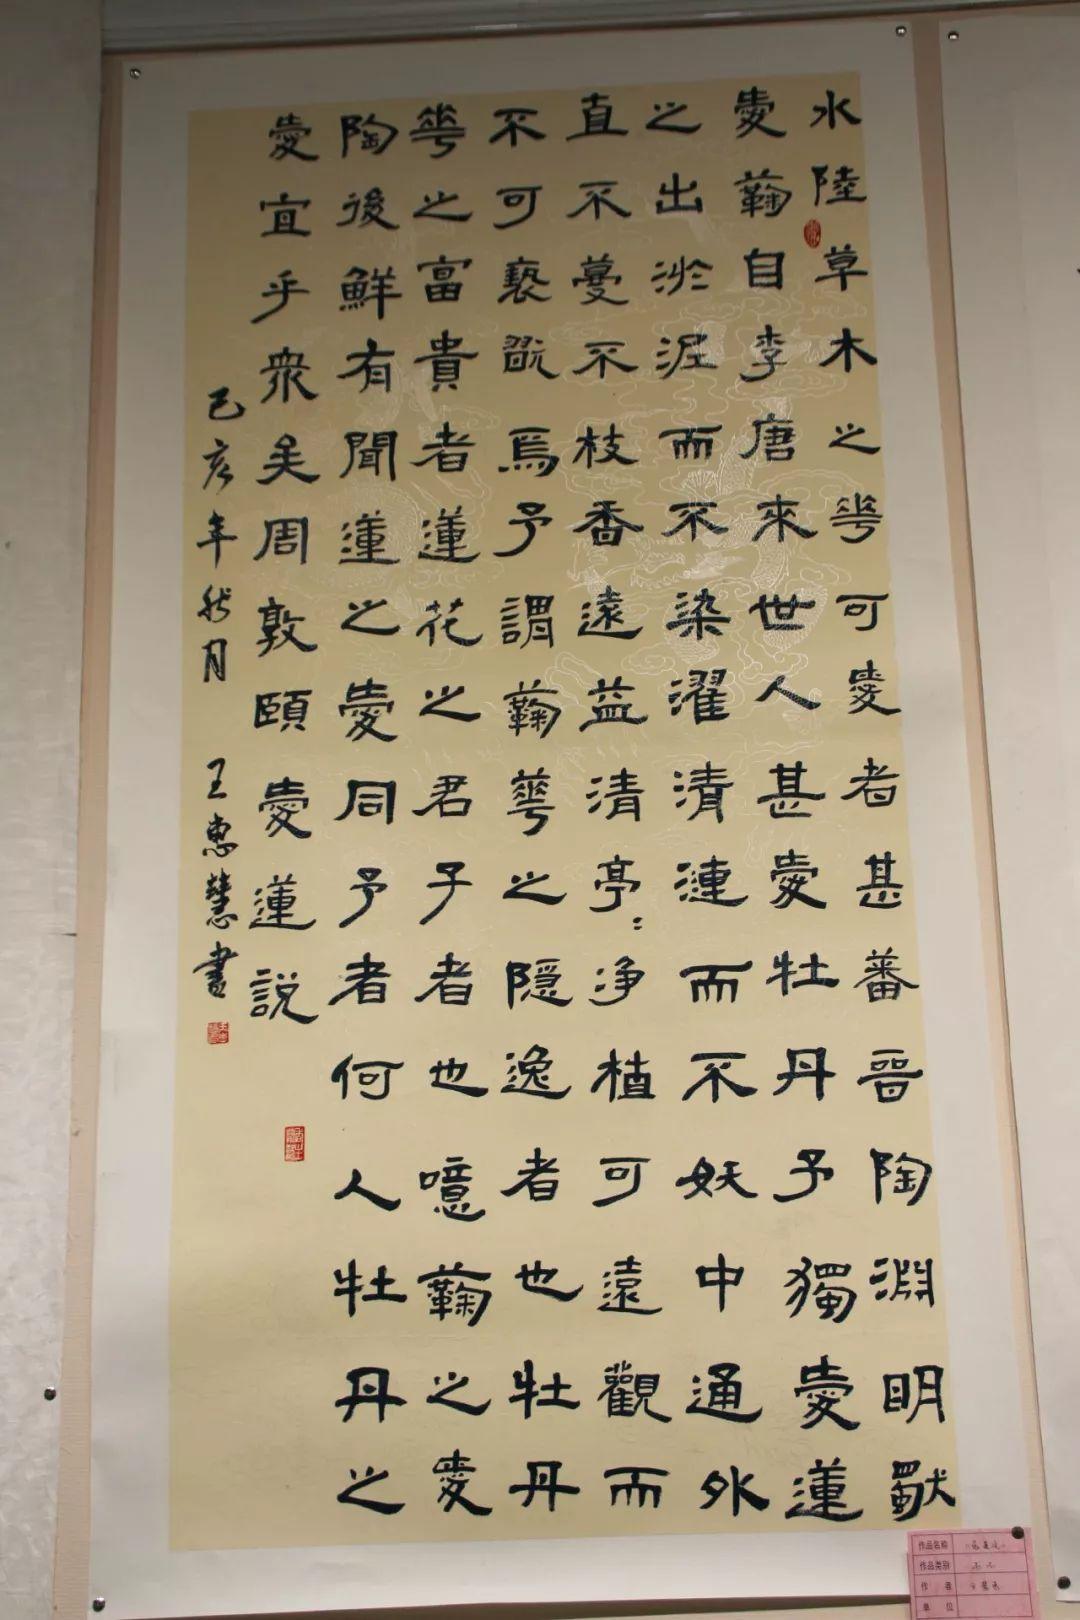 水陸草木之華可愛者甚蕃晉陶淵明獨
愛蘜自李唐來世人甚愛牡丹予獨愛蓮
之出淤泥而不染濯清漣而不妖中通外
直不蔓不枝香遠益清亭:淨植可遠觀而
不可褻翫焉予謂蘜華之隱逸者也牡丹
華之富貴者蓮花之君子者也噫蘜之愛
陶後鮮有聞蓮之愛同予者何人牡丹之
愛宜乎衆矣周敦頤愛蓮說
己亥年秋月 王惠慧書
作品名称
作品类别
作 者
单 位